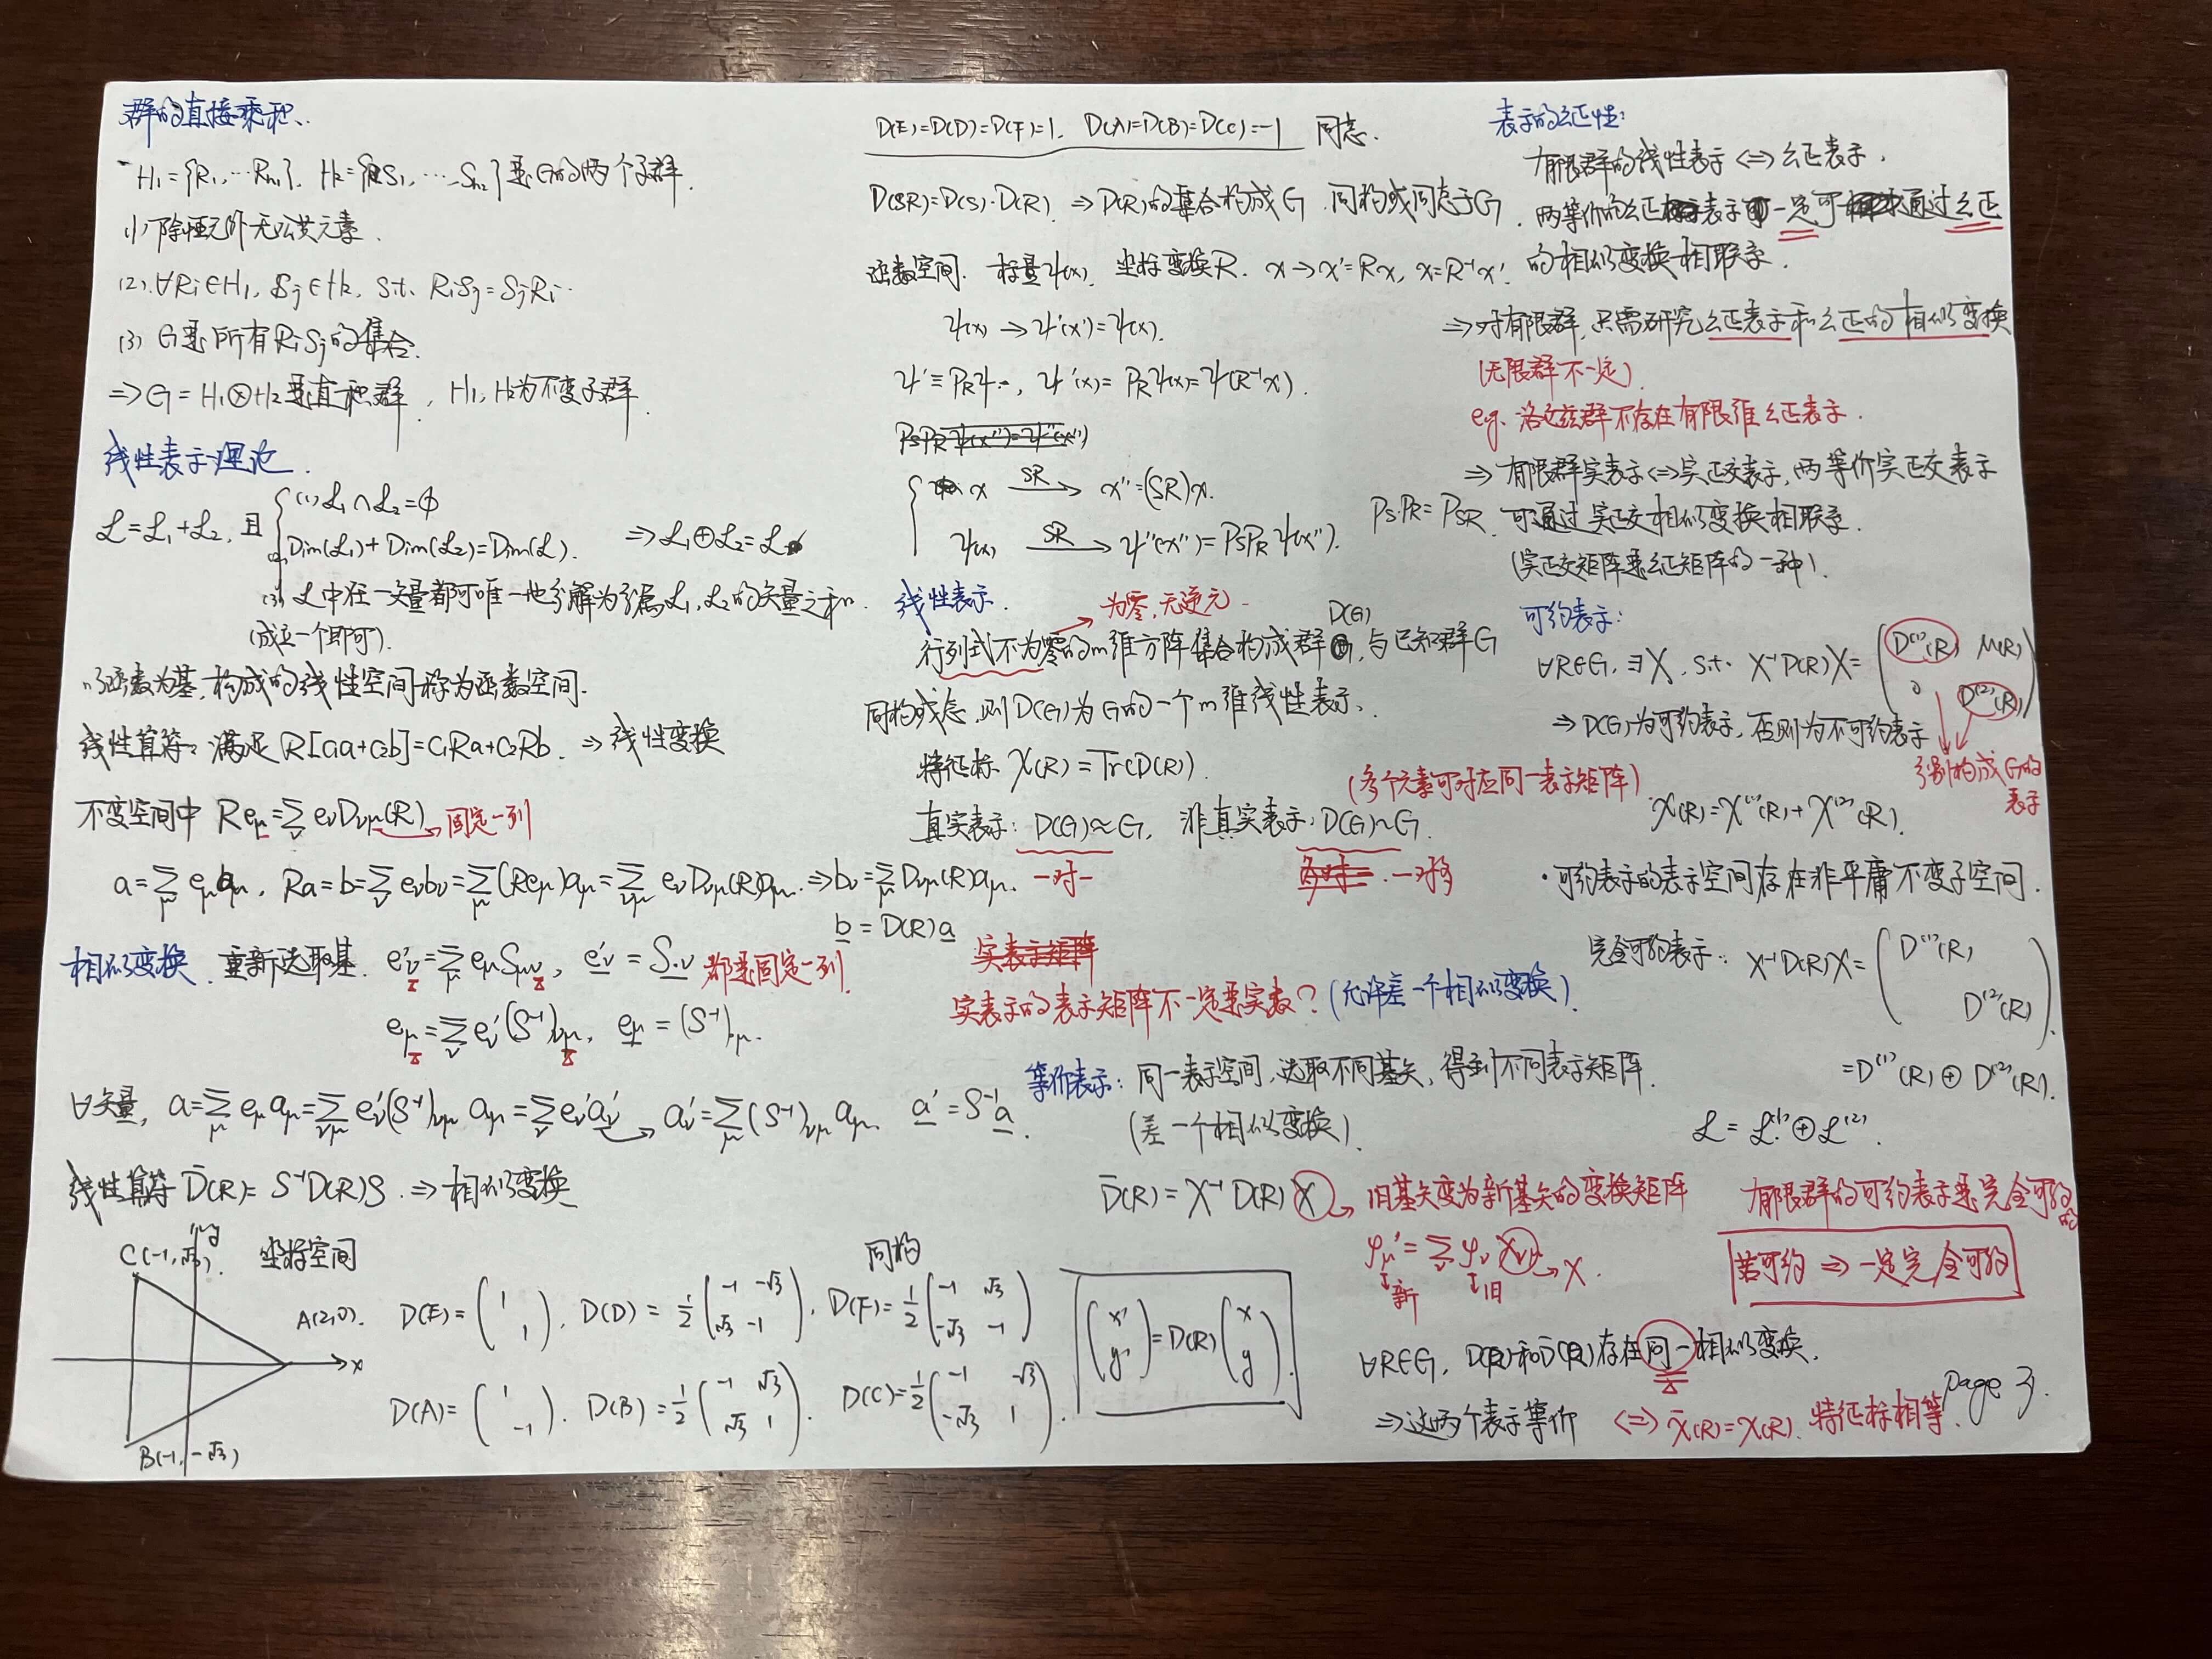 群的直接乘积.
H₁={R₁,…Rn₁}, H₂={S₁,…,Sn₂}是G的两个子群.
(1) 除恒元外无公共元素.
(2) ∀Ri∈H₁, Sj∈H₂, s.t. RiSj=SjRi.
(3) G是所有RiSj的集合.
⇒G=H₁⊗H₂是直积群, H₁,H₂为不变子群.
线性表示理论.
ℒ=ℒ₁+ℒ₂, 且
(1) ℒ₁∩ℒ₂=∅
Dim(ℒ₁)+Dim(ℒ₂)=Dim(ℒ). ⇒ℒ₁⊕ℒ₂=ℒ
(3) ℒ中任一矢量都可唯一地分解为分属ℒ₁,ℒ₂的矢量之和.
(成立一个即可).
以函数为基,构成的线性空间称为函数空间.
线性算符:满足R[c₁a+c₂b]=c₁Ra+c₂Rb. ⇒线性变换
不变空间中 Reμ=∑ν eνDνμ(R) → 固定一列
a=∑μ eμaμ, Ra=b=∑ν eνbν=∑μ(Reμ)aμ=∑νμ eνDνμ(R)aμ.⇒bν=∑μ Dνμ(R)aμ.
b=D(R)a
相似变换. 重新选取基. e′ν=∑μ eμSμν, e′ν=S·ν 都是固定一列
eμ=∑ν e′ν(S⁻¹)νμ, eμ=(S⁻¹)·μ.
∀矢量, a=∑μ eμaμ=∑νμ e′ν(S⁻¹)νμ aμ=∑ν e′νa′ν → a′ν=∑μ(S⁻¹)νμ aμ, a′=S⁻¹a.
线性算符 D̄(R)=S⁻¹D(R)S.⇒相似变换
y
C(-1,√3). 坐标空间
A(2,0).
x
B(-1,-√3)
同构
D(E)=(1 ; 1). D(D)=½(-1 -√3 ; √3 -1), D(F)=½(-1 √3 ; -√3 -1)
D(A)=(1 ; -1). D(B)=½(-1 √3 ; √3 1). D(C)=½(-1 -√3 ; -√3 1).
(x′ ; y′)=D(R)(x ; y).
D(E)=D(D)=D(F)=1. D(A)=D(B)=D(C)=-1 同态.
D(SR)=D(S)·D(R) ⇒D(R)的集合构成G 同构或同态于G.
函数空间. 标量ψ(x), 坐标变换R. x→x′=Rx, x=R⁻¹x′.
ψ(x)→ψ′(x′)=ψ(x).
ψ′≡P_Rψ, ψ′(x)=P_Rψ(x)=ψ(R⁻¹x).
P_SP_Rψ(x″)=ψ″(x″)
x —SR→ x″=(SR)x.
ψ(x) —SR→ ψ″(x″)=P_SP_Rψ(x″). P_SP_R=P_SR
线性表示. 为零,无逆元
D(G)
行列式不为零的m维方阵集合构成群, 与已知群G
同构或态,则D(G)为G的一个m维线性表示.
特征标 χ(R)=Tr(D(R)).
(多个元素可对应同一表示矩阵)
真实表示: D(G)≈G, 非真实表示: D(G)~G.
一对一 一对多
实表示矩阵
实表示的表示矩阵不一定是实数?(允许差一个相似变换)
等价表示: 同一表示空间,选取不同基矢,得到不同表示矩阵.
(差一个相似变换).
D̄(R)=X⁻¹D(R)X → 旧基矢变为新基矢的变换矩阵
φ′μ=∑ν φν Xνμ → X.
新 旧
∀R∈G, D(R)和D̄(R)存在同一相似变换.
⇒这两个表示等价 ⇔χ̄(R)=χ(R). 特征标相等.
表示的幺正性:
有限群的线性表示⇔幺正表示.
两等价的幺正表示一定可通过幺正
的相似变换相联系.
⇒对有限群,只需研究幺正表示和幺正的相似变换
(无限群不一定).
eg. 洛仑兹群不存在有限维幺正表示.
⇒有限群实表示⇔实正交表示,两等价实正交表示
可通过实正交相似变换相联系.
(实正交矩阵是幺正矩阵的一种).
可约表示:
∀R∈G, ∃X, s.t. X⁻¹D(R)X=(D⁽¹⁾(R) M(R) ; 0 D⁽²⁾(R))
⇒D(G)为可约表示,否则为不可约表示
分别构成G的
表示
χ(R)=χ⁽¹⁾(R)+χ⁽²⁾(R).
·可约表示的表示空间存在非平庸不变子空间.
完全可约表示: X⁻¹D(R)X=(D⁽¹⁾(R) ; D⁽²⁾(R)).
=D⁽¹⁾(R)⊕D⁽²⁾(R).
ℒ=ℒ⁽¹⁾⊕ℒ⁽²⁾.
有限群的可约表示是完全可约的
若可约⇒一定完全可约
Page 3.